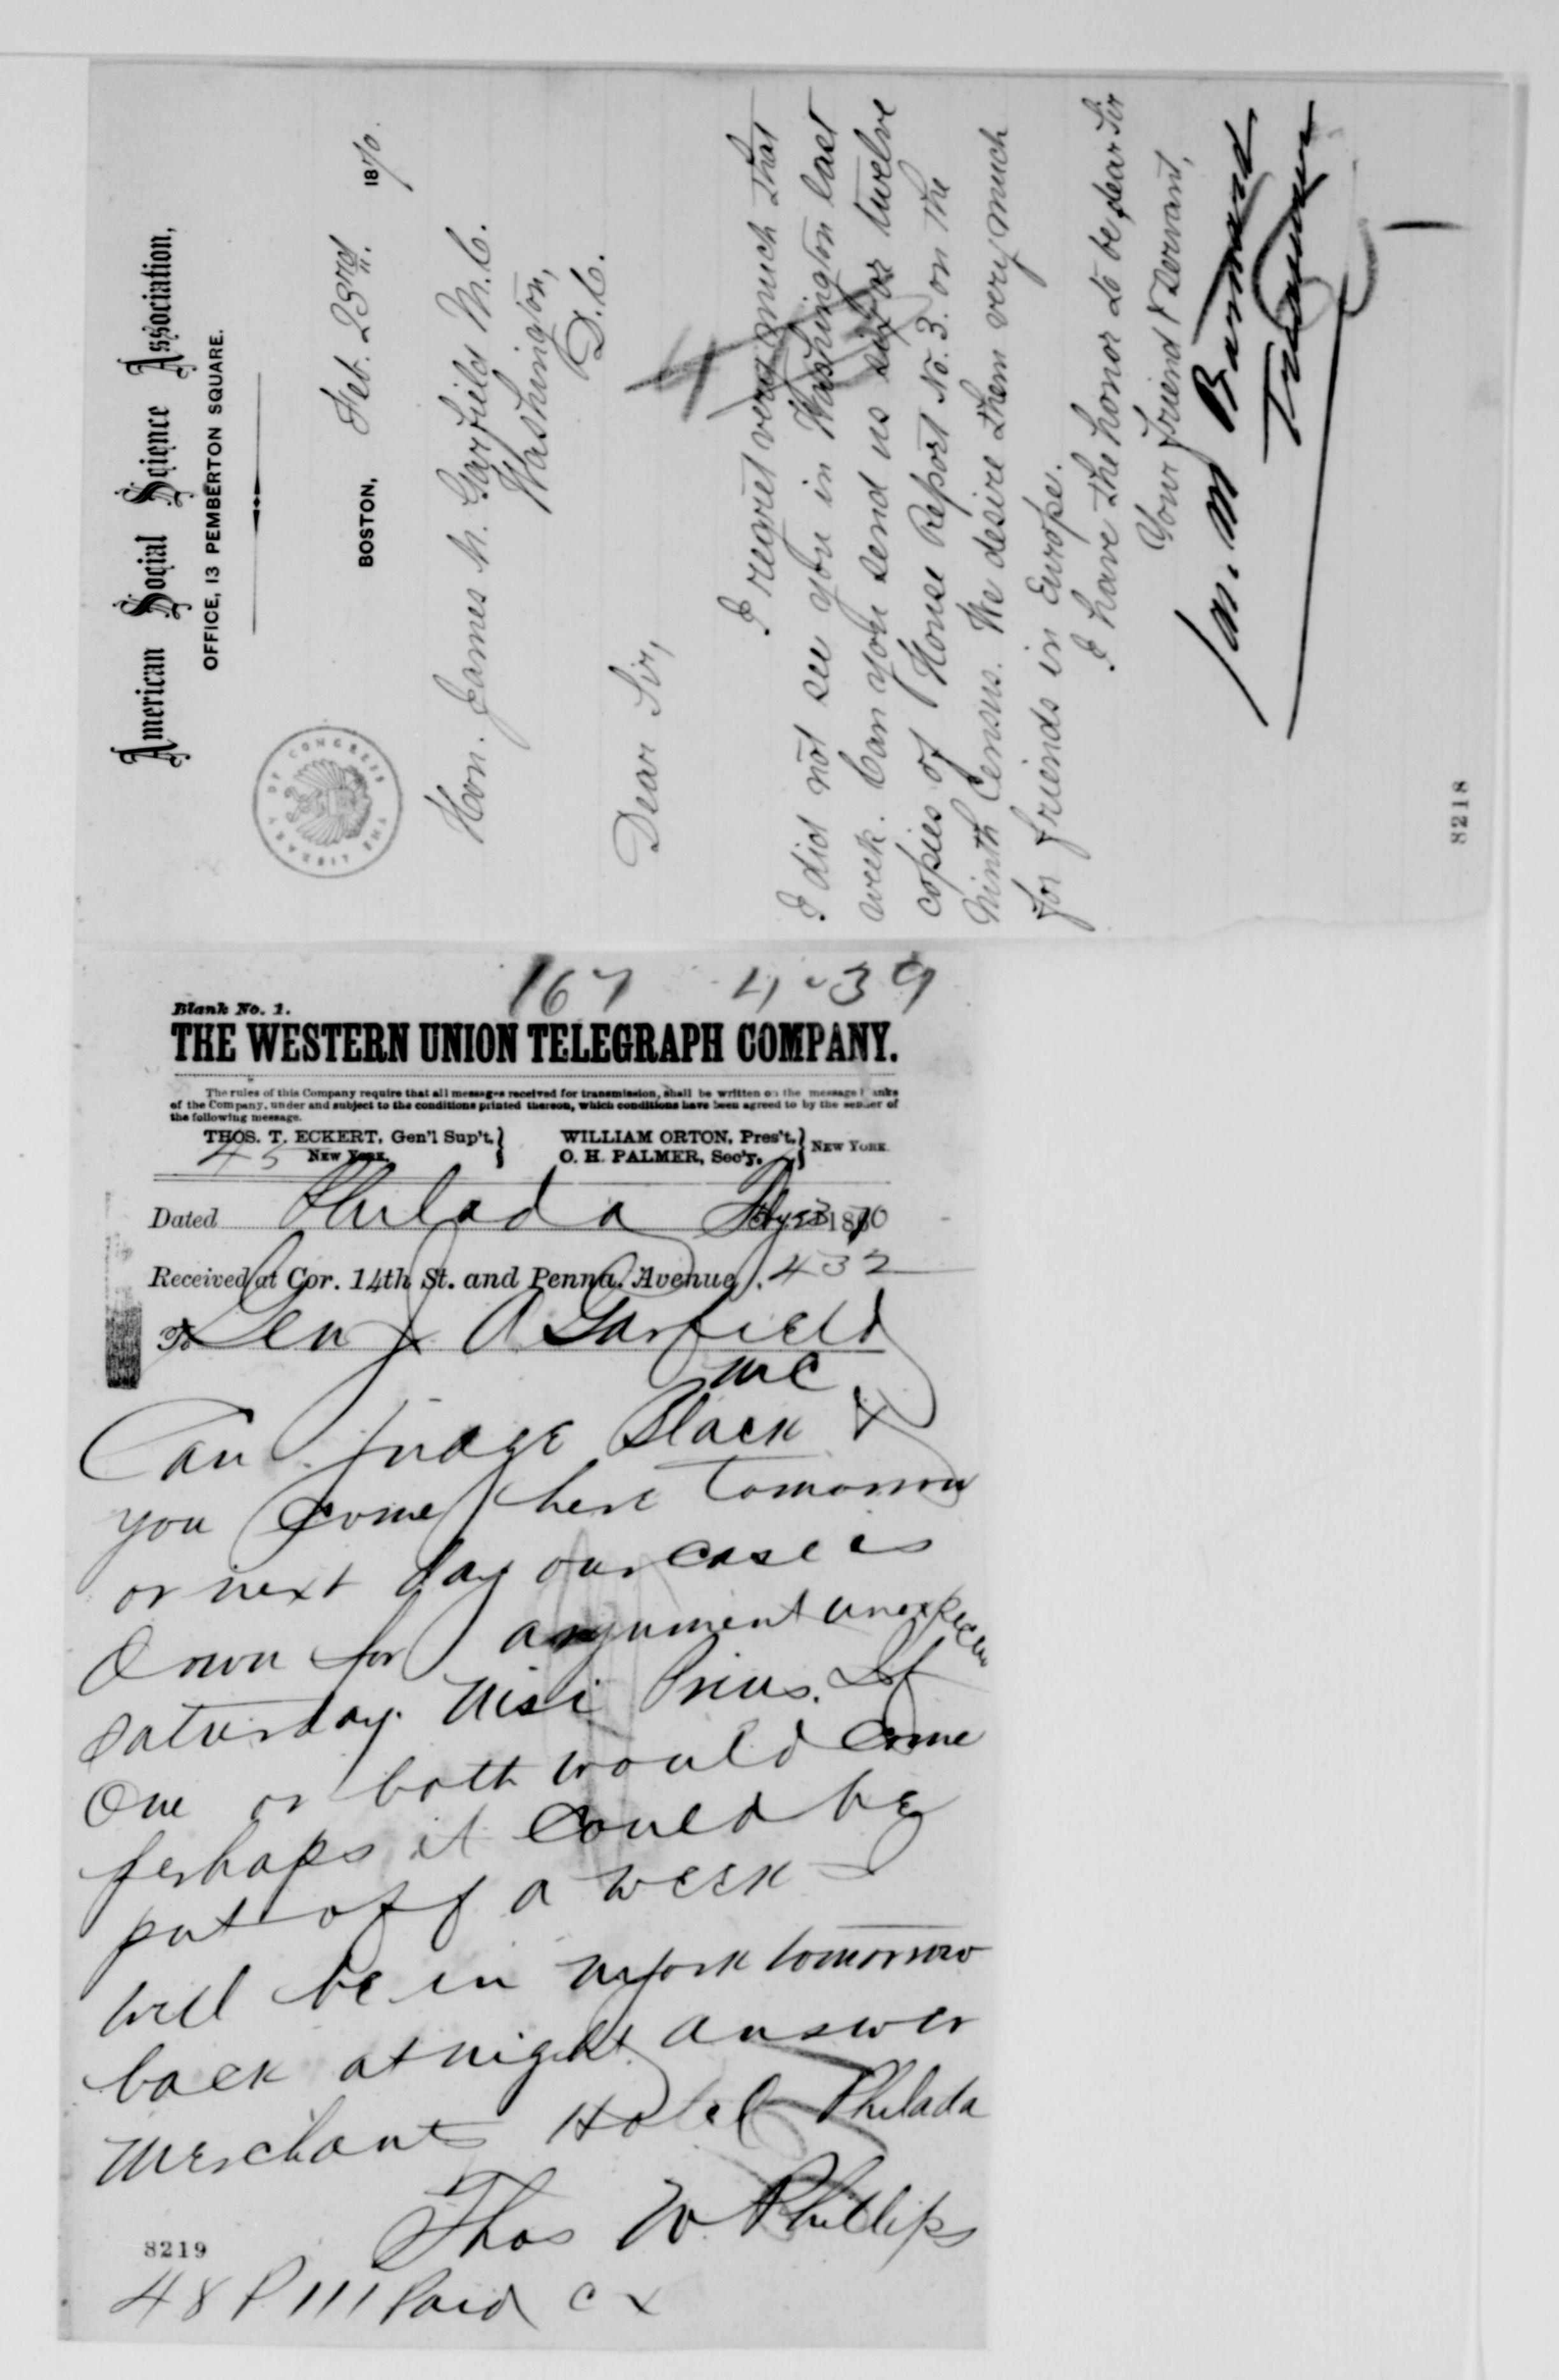 American Social Science Association,
OFFICE, 13 PEMBERTON SQUARE.
BOSTON, Feb. 23rd. 1870.
THE LIBRARY OF CONGRESS
Hon. James M. Garfield M.C.
Washington,
D.C.
Dear Sir,
I regret very much that
I did not see you in Washington last
week. Can you send us six or twelve
copies of House Report No. 3. on the
Ninth Census. We desire them very much
for friends in Europe.
I have the honor to be, dear Sir
Your friend & servant,
Jas. M Barnard
Treasurer
8218
167 4-39
Blank No. 1.
THE WESTERN UNION TELEGRAPH COMPANY.
The rules of this Company require that all messages received for transmission, shall be written on the message blanks
of the Company, under and subject to the conditions printed thereon, which conditions have been agreed to by the sender of
the following message.
THOS. T. ECKERT, Gen'l Sup't, WILLIAM ORTON, Pres't,
NEW YORK. O. H. PALMER, Sec'y, NEW YORK.
45
Dated Philada 23 1870
Received at Cor. 14th St. and Penna. Avenue, 432
To Gen J A Garfield
MC
Can Judge Black &
you come here tomorrow
or next day our case is
down for argument
saturday Nisi Prius. If
one or both would come
perhaps it could be
put off a week I
will be in NYork tomorrow
back at night answer
Merchants Hotel Philada
Thos W Phillips
8219
48 P 111 Paid